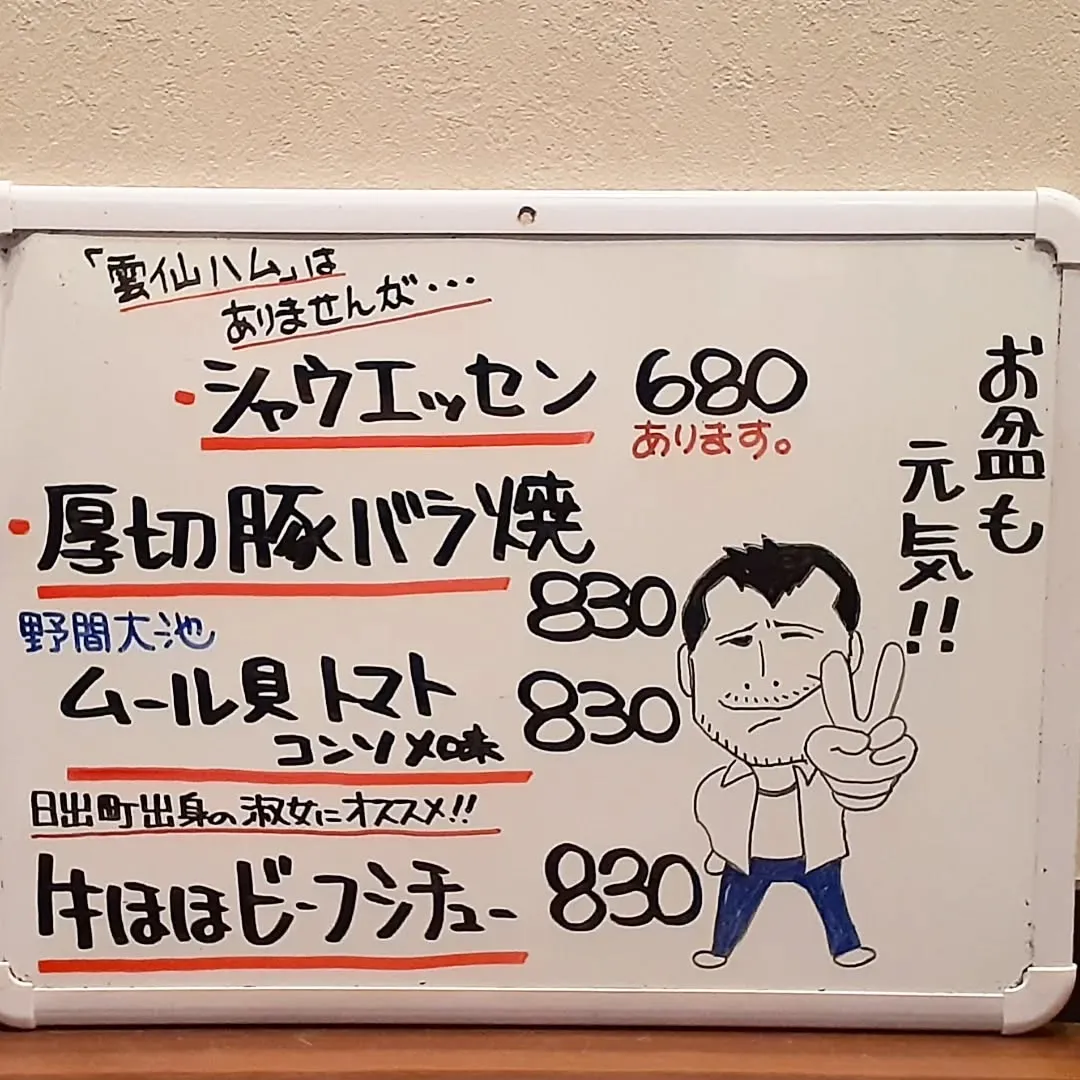 「雲仙ハム」は
ありませんが・・・
・シャウエッセン 680
あります。
・厚切豚バラ焼
830
野間大池
ムール貝トマト 830
コンソメ味
日出町出身の淑女にオススメ!!
牛ほほビーフシチュー 830
お盆も
元気!!